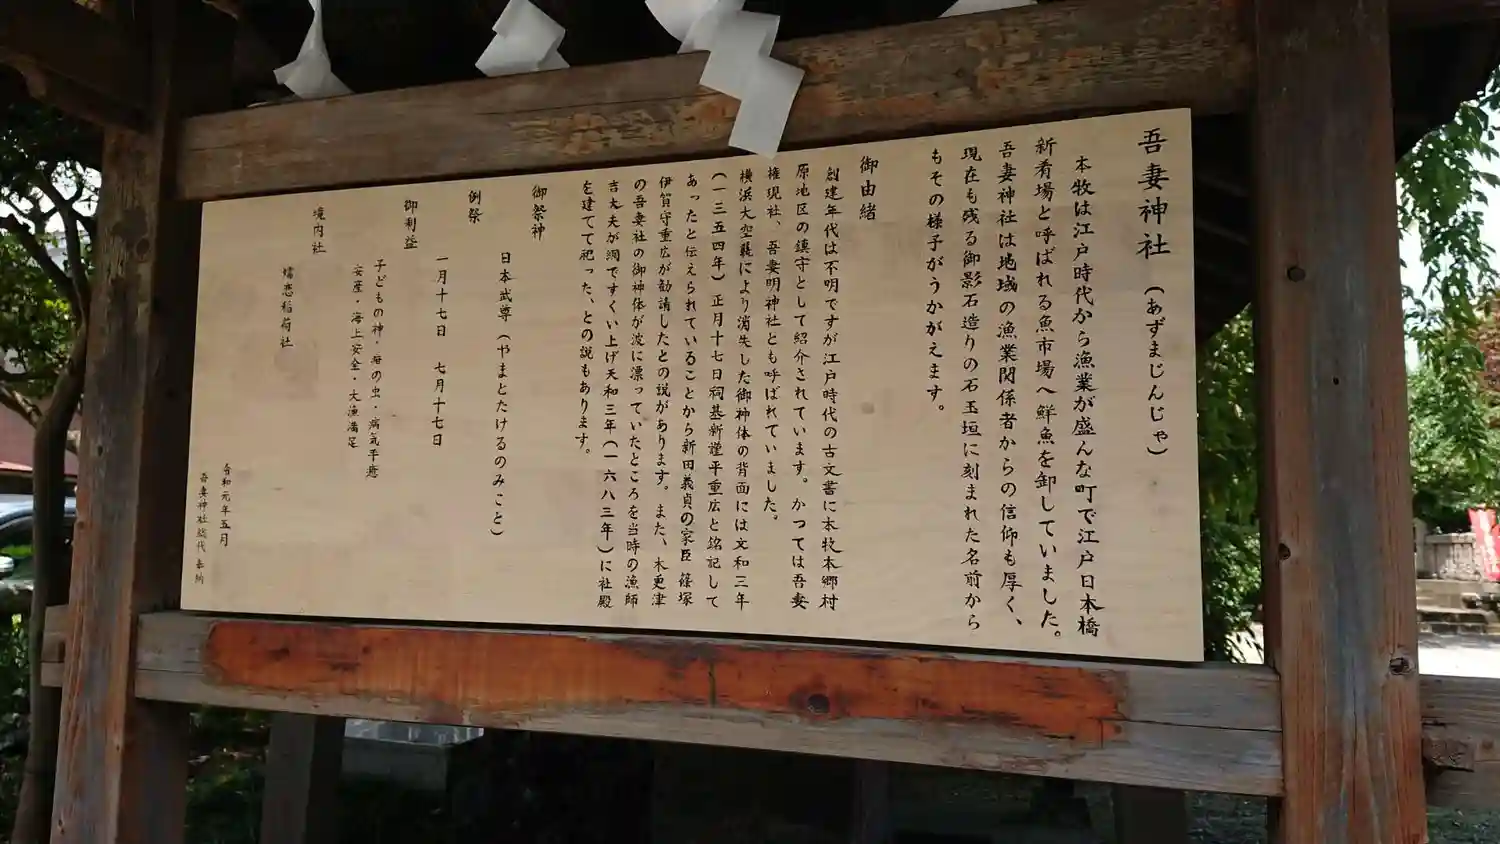 吾妻神社（あずまじんじゃ）
本牧は江戸時代から漁業が盛んな町で江戸日本橋
新肴場と呼ばれる魚市場へ鮮魚を卸していました。
吾妻神社は地域の漁業関係者からの信仰も厚く、
現在も残る御影石造りの石玉垣に刻まれた名前から
もその様子がうかがえます。
御由緒
創建年代は不明ですが江戸時代の古文書に本牧本郷村
原地区の鎮守として紹介されています。かつては吾妻
権現社、吾妻明神社とも呼ばれていました。
横浜大空襲により消失した御神体の背面には文和三年
（一三五四年）正月十七日祠基新謹平重広と銘記して
あったと伝えられていることから新田義貞の家臣 篠塚
伊賀守重広が勧請したとの説があります。また、木更津
の吾妻社の御神体が波に漂っていたところを当時の漁師
吉太夫が網ですくい上げ天和三年（一六八三年）に社殿
を建てて祀った、との説もあります。
御祭神
日本武尊（やまとたけるのみこと）
例祭
一月十七日 七月十七日
御利益
子どもの神・疳の虫・病気平癒
安産・海上安全・大漁満足
境内社
稲荷社
令和元年五月
吾妻神社総代 奉納